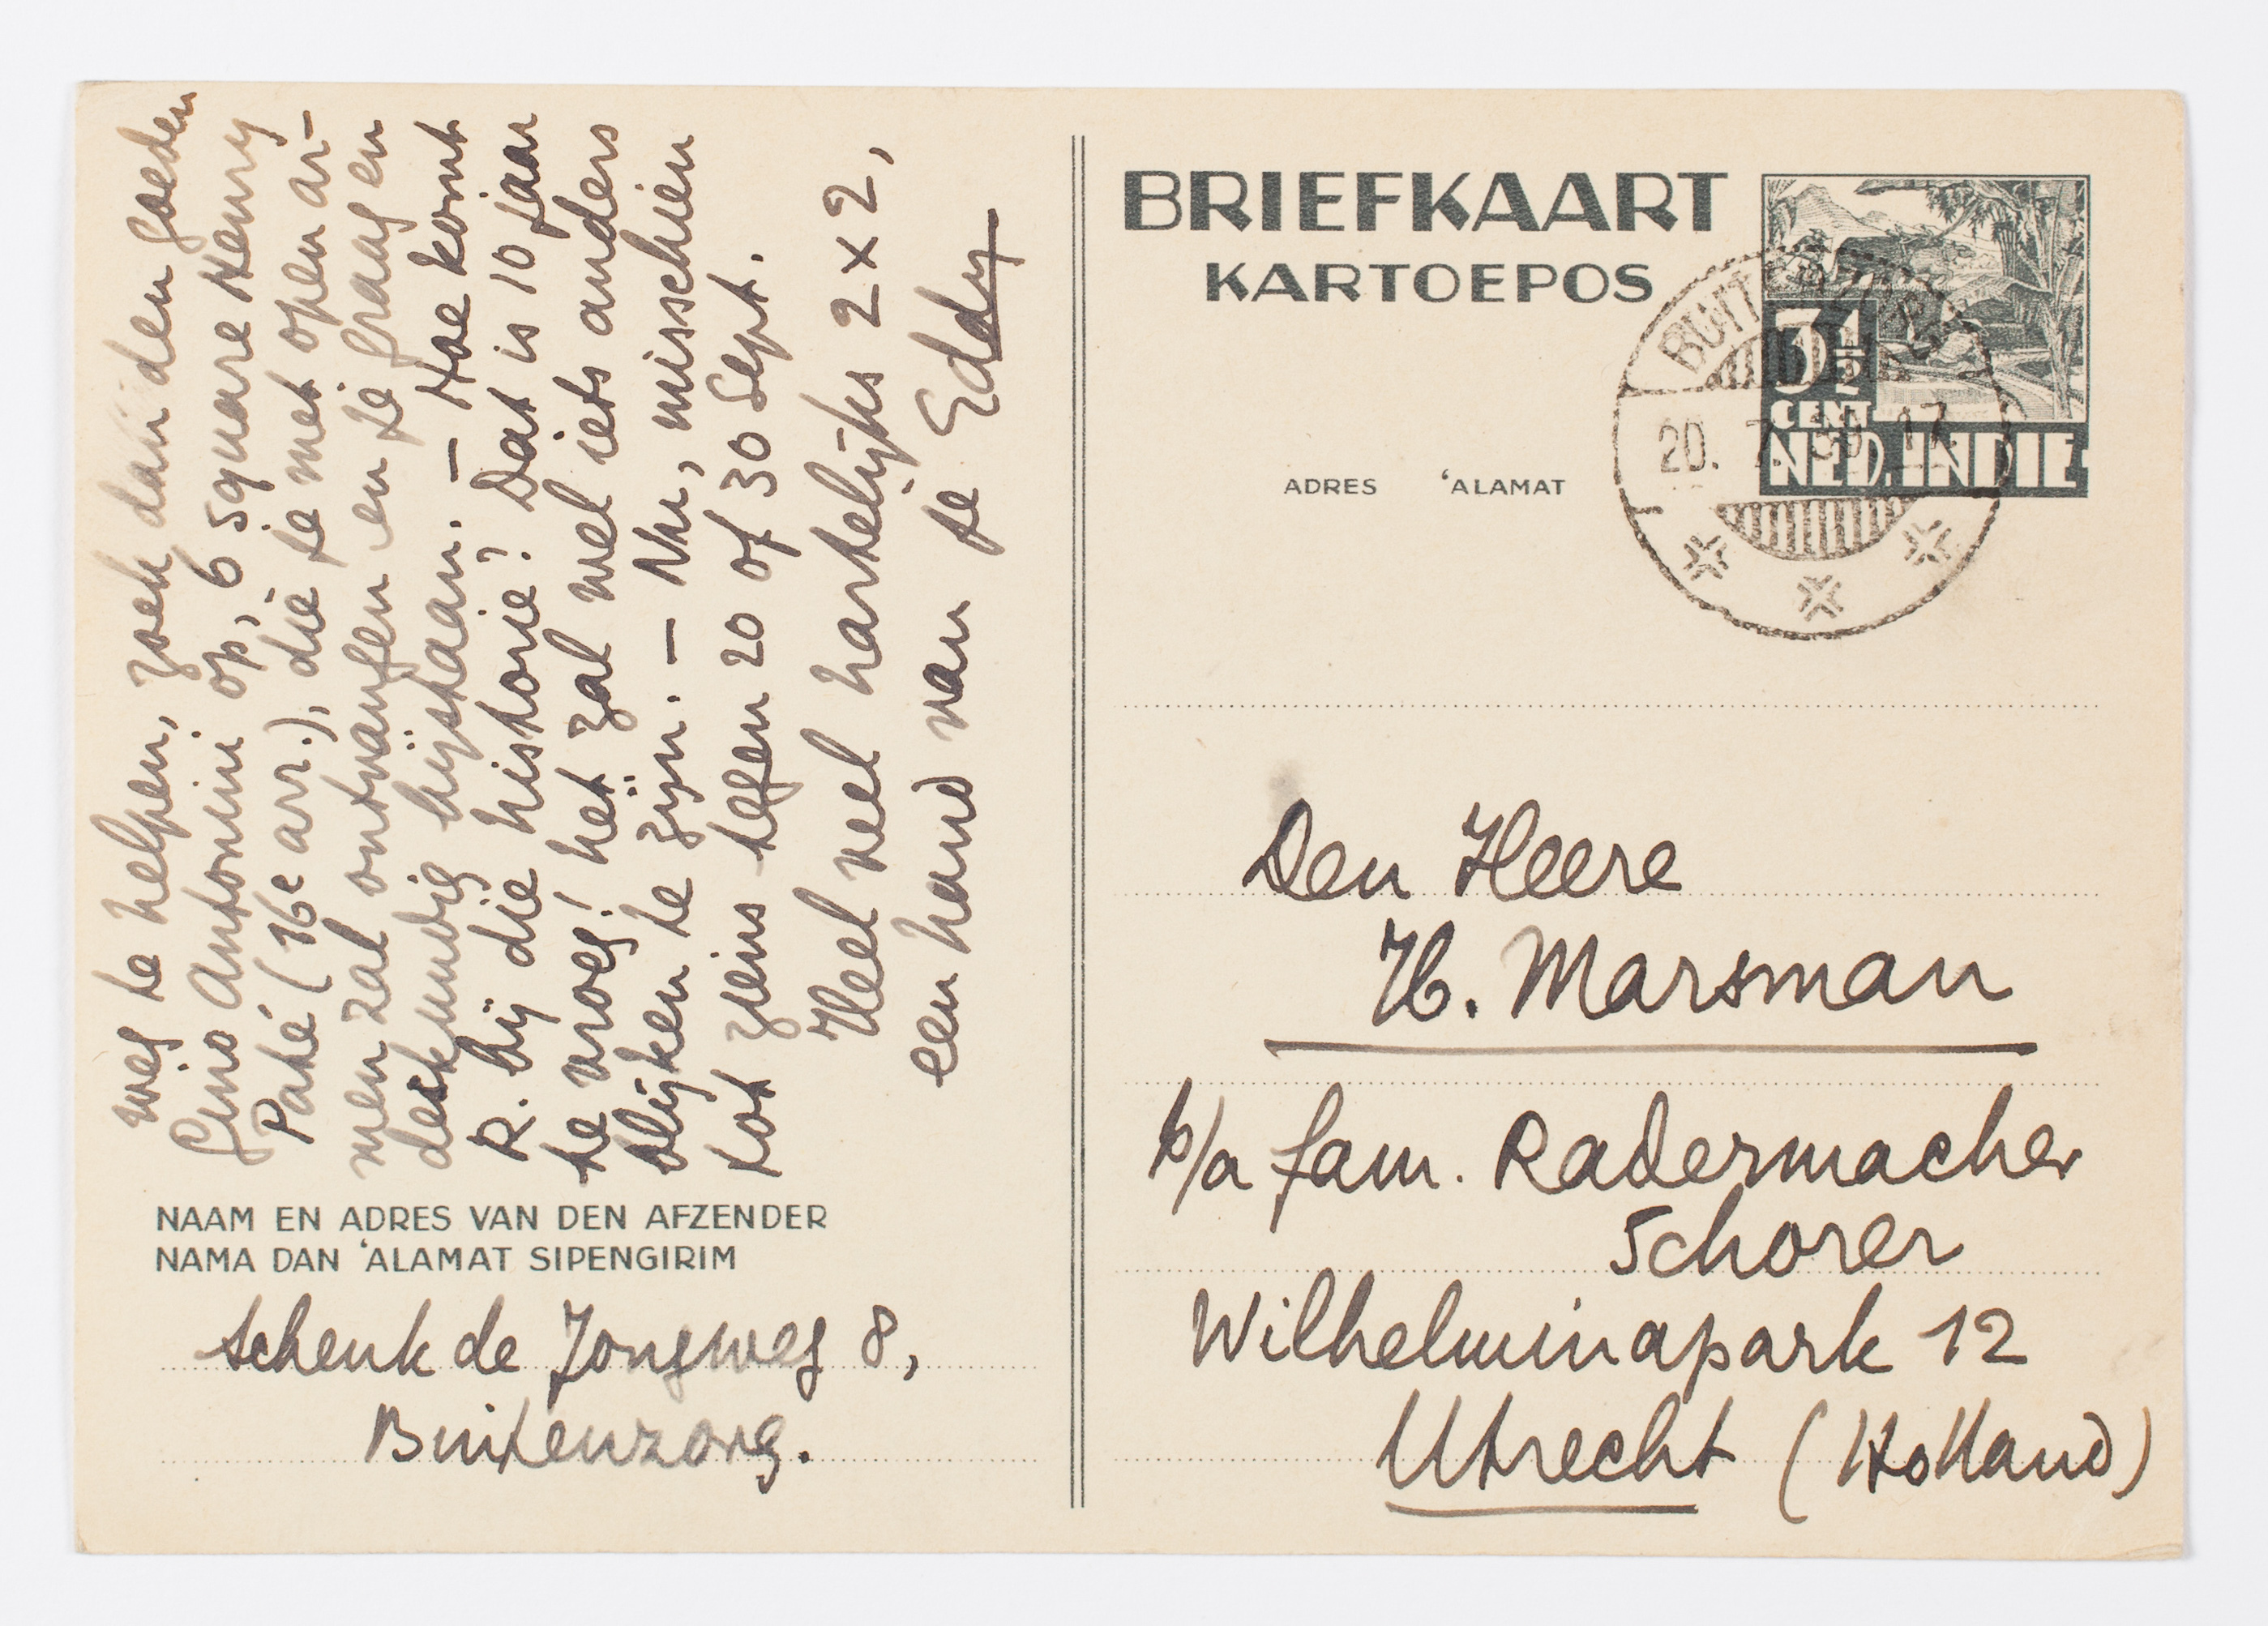 weg te helpen, zoek dan den goeden
Gino Antonini op, 6 square Henry
Paté (16e arr.), die je met open ar-
men zal ontvangen en je graag en
deskundig bijstaan. — Hoe komt
R. bij die historie? Dat is 10 jaar
te vroeg! het zal wel iets anders
blijken te zijn. — Nu, misschien
tot ziens tegen 20 of 30 Sept.
Heel veel hartelijks 2 x 2,
een hand van je Eddy
NAAM EN ADRES VAN DEN AFZENDER
NAMA DAN 'ALAMAT SIPENGIRIM
Schenk de Jongweg 8,
Buitenzorg.
BRIEFKAART
KARTOEPOS
3½
CENT
NED. INDIE
BUIT
20. 7. 39 17
ADRES 'ALAMAT
Den Heere
H. Marsman
b/a fam. Radermacher
Schorer
Wilhelminapark 12
Utrecht (Holland)